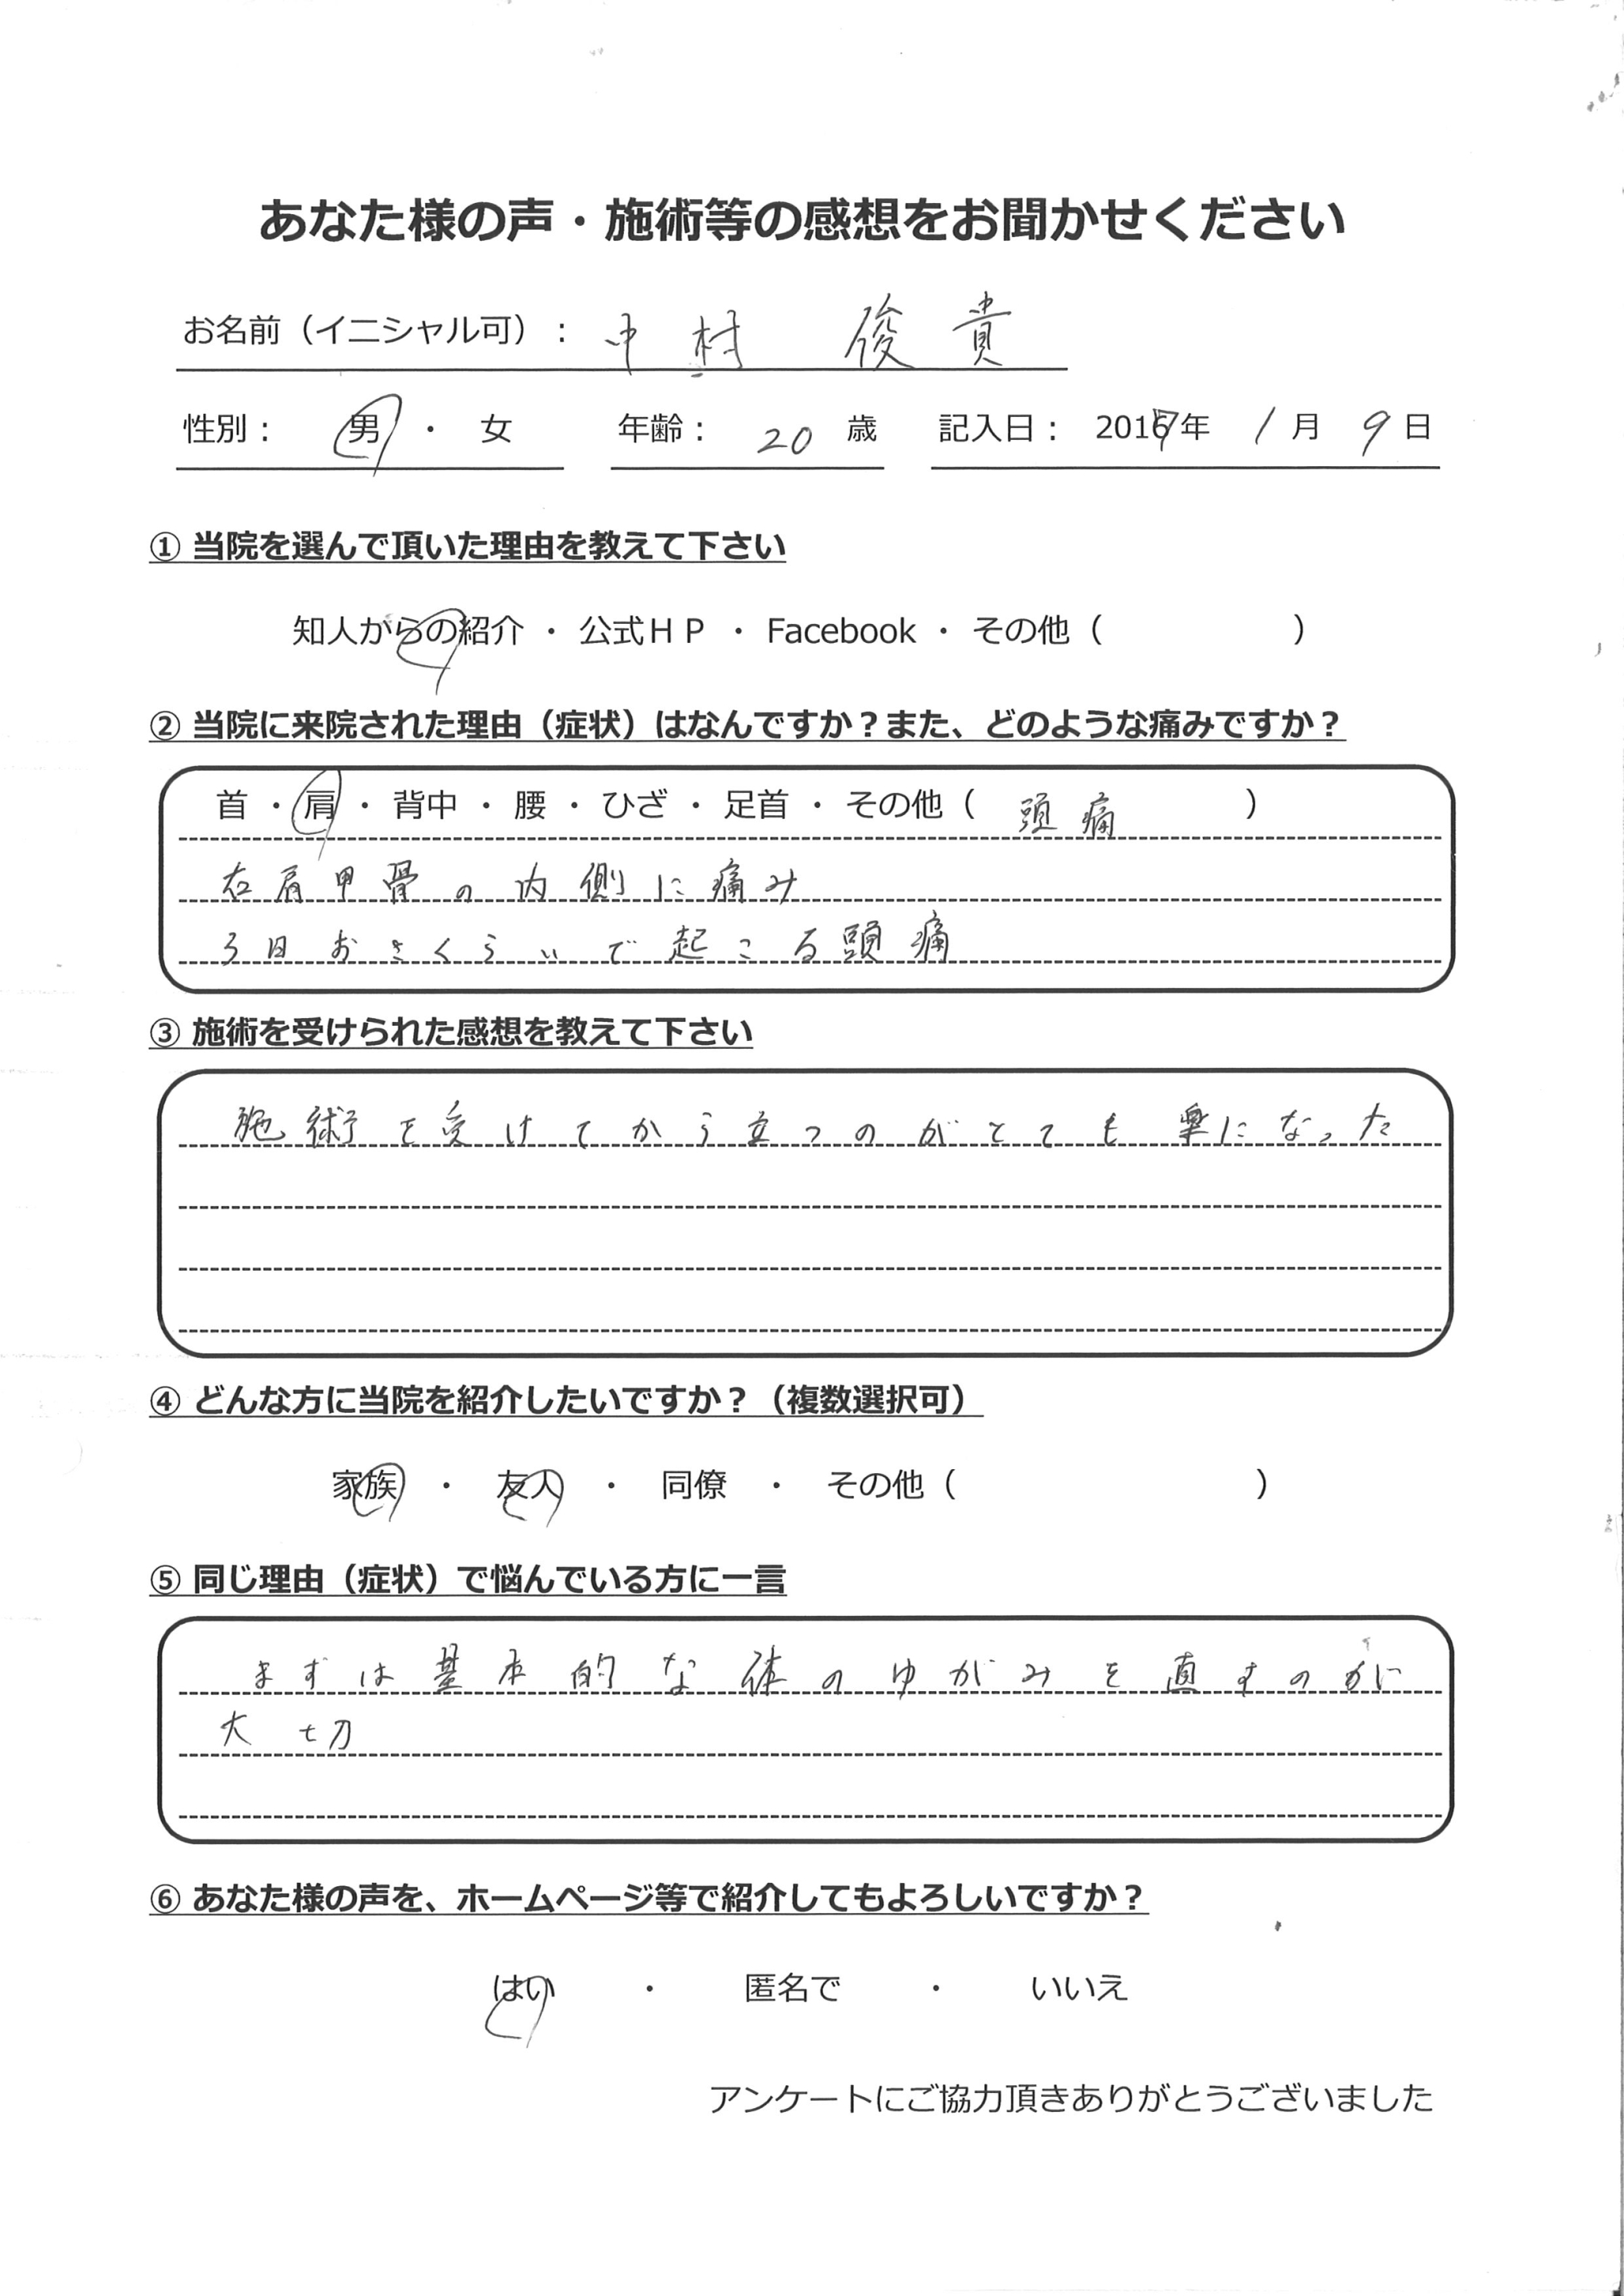 あなた様の声・施術等の感想をお聞かせください
お名前（イニシャル可）： 中村 俊貴
性別： 男 ・ 女 年齢： 20 歳 記入日： 2017年 1月 9日
① 当院を選んで頂いた理由を教えて下さい
知人からの紹介 ・ 公式ＨＰ ・ Facebook ・ その他（ ）
② 当院に来院された理由（症状）はなんですか？また、どのような痛みですか？
首 ・ 肩 ・ 背中 ・ 腰 ・ ひざ ・ 足首 ・ その他（ 頭痛 ）
右肩甲骨の内側に痛み
3日おきくらいで起こる頭痛
③ 施術を受けられた感想を教えて下さい
施術を受けてから立つのがとても楽になった
④ どんな方に当院を紹介したいですか？（複数選択可）
家族 ・ 友人 ・ 同僚 ・ その他（ ）
⑤ 同じ理由（症状）で悩んでいる方に一言
まずは基本的な体のゆがみを直すのが
大切
⑥ あなた様の声を、ホームページ等で紹介してもよろしいですか？
はい ・ 匿名で ・ いいえ
アンケートにご協力頂きありがとうございました